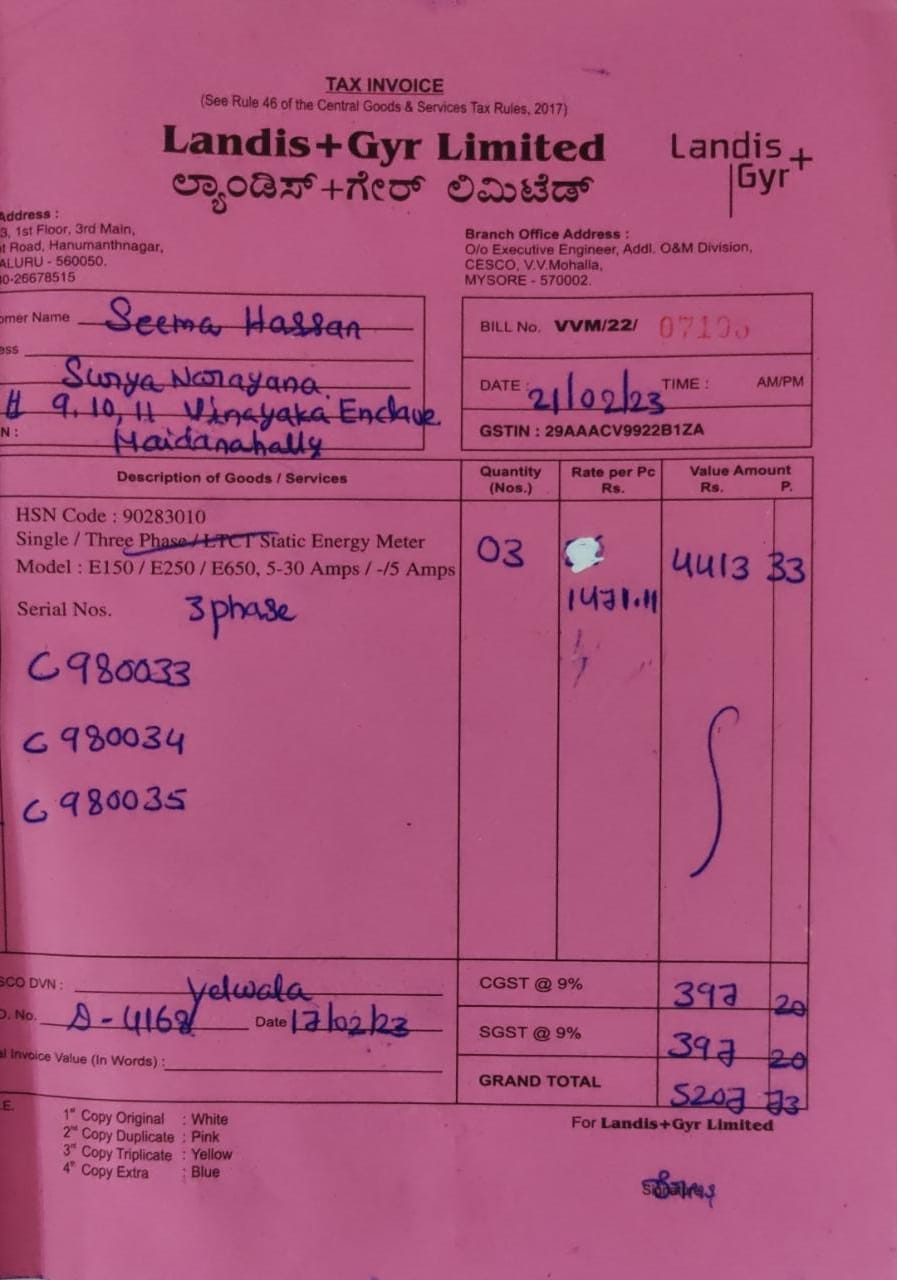 TAX INVOICE
(See Rule 46 of the Central Goods & Services Tax Rules, 2017)
Landis+Gyr Limited
ಲ್ಯಾಂಡಿಸ್+ಗೇರ್ ಲಿಮಿಟೆಡ್
Landis+
Gyr
Address :
3, 1st Floor, 3rd Main,
t Road, Hanumanthnagar,
ALURU - 560050.
0-26678515
Branch Office Address :
O/o Executive Engineer, Addl. O&M Division,
CESCO, V.V.Mohalla,
MYSORE - 570002.
omer Name Seema Hassan
ess
Surya Narayana
# 9, 10, 11 Vinayaka Enclave
N :
Maidanahally
BILL No. VVM/22/
DATE : 21/02/23 TIME : AM/PM
GSTIN : 29AAACV9922B1ZA
Description of Goods / Services Quantity (Nos.) Rate per Pc Rs. Value Amount Rs. P.
HSN Code : 90283010
Single / Three Phase / LTCT Static Energy Meter
Model : E150 / E250 / E650, 5-30 Amps / -/5 Amps
03 1471.11 4413 33
Serial Nos. 3 phase
C980033
C980034
C980035
SCO DVN : Yelwala
O. No. D-4168 Date 17/02/23
al Invoice Value (In Words) :
CGST @ 9% 397 20
SGST @ 9% 397 20
GRAND TOTAL 5207 73
E.
1st Copy Original : White
2nd Copy Duplicate : Pink
3rd Copy Triplicate : Yellow
4th Copy Extra : Blue
For Landis+Gyr Limited